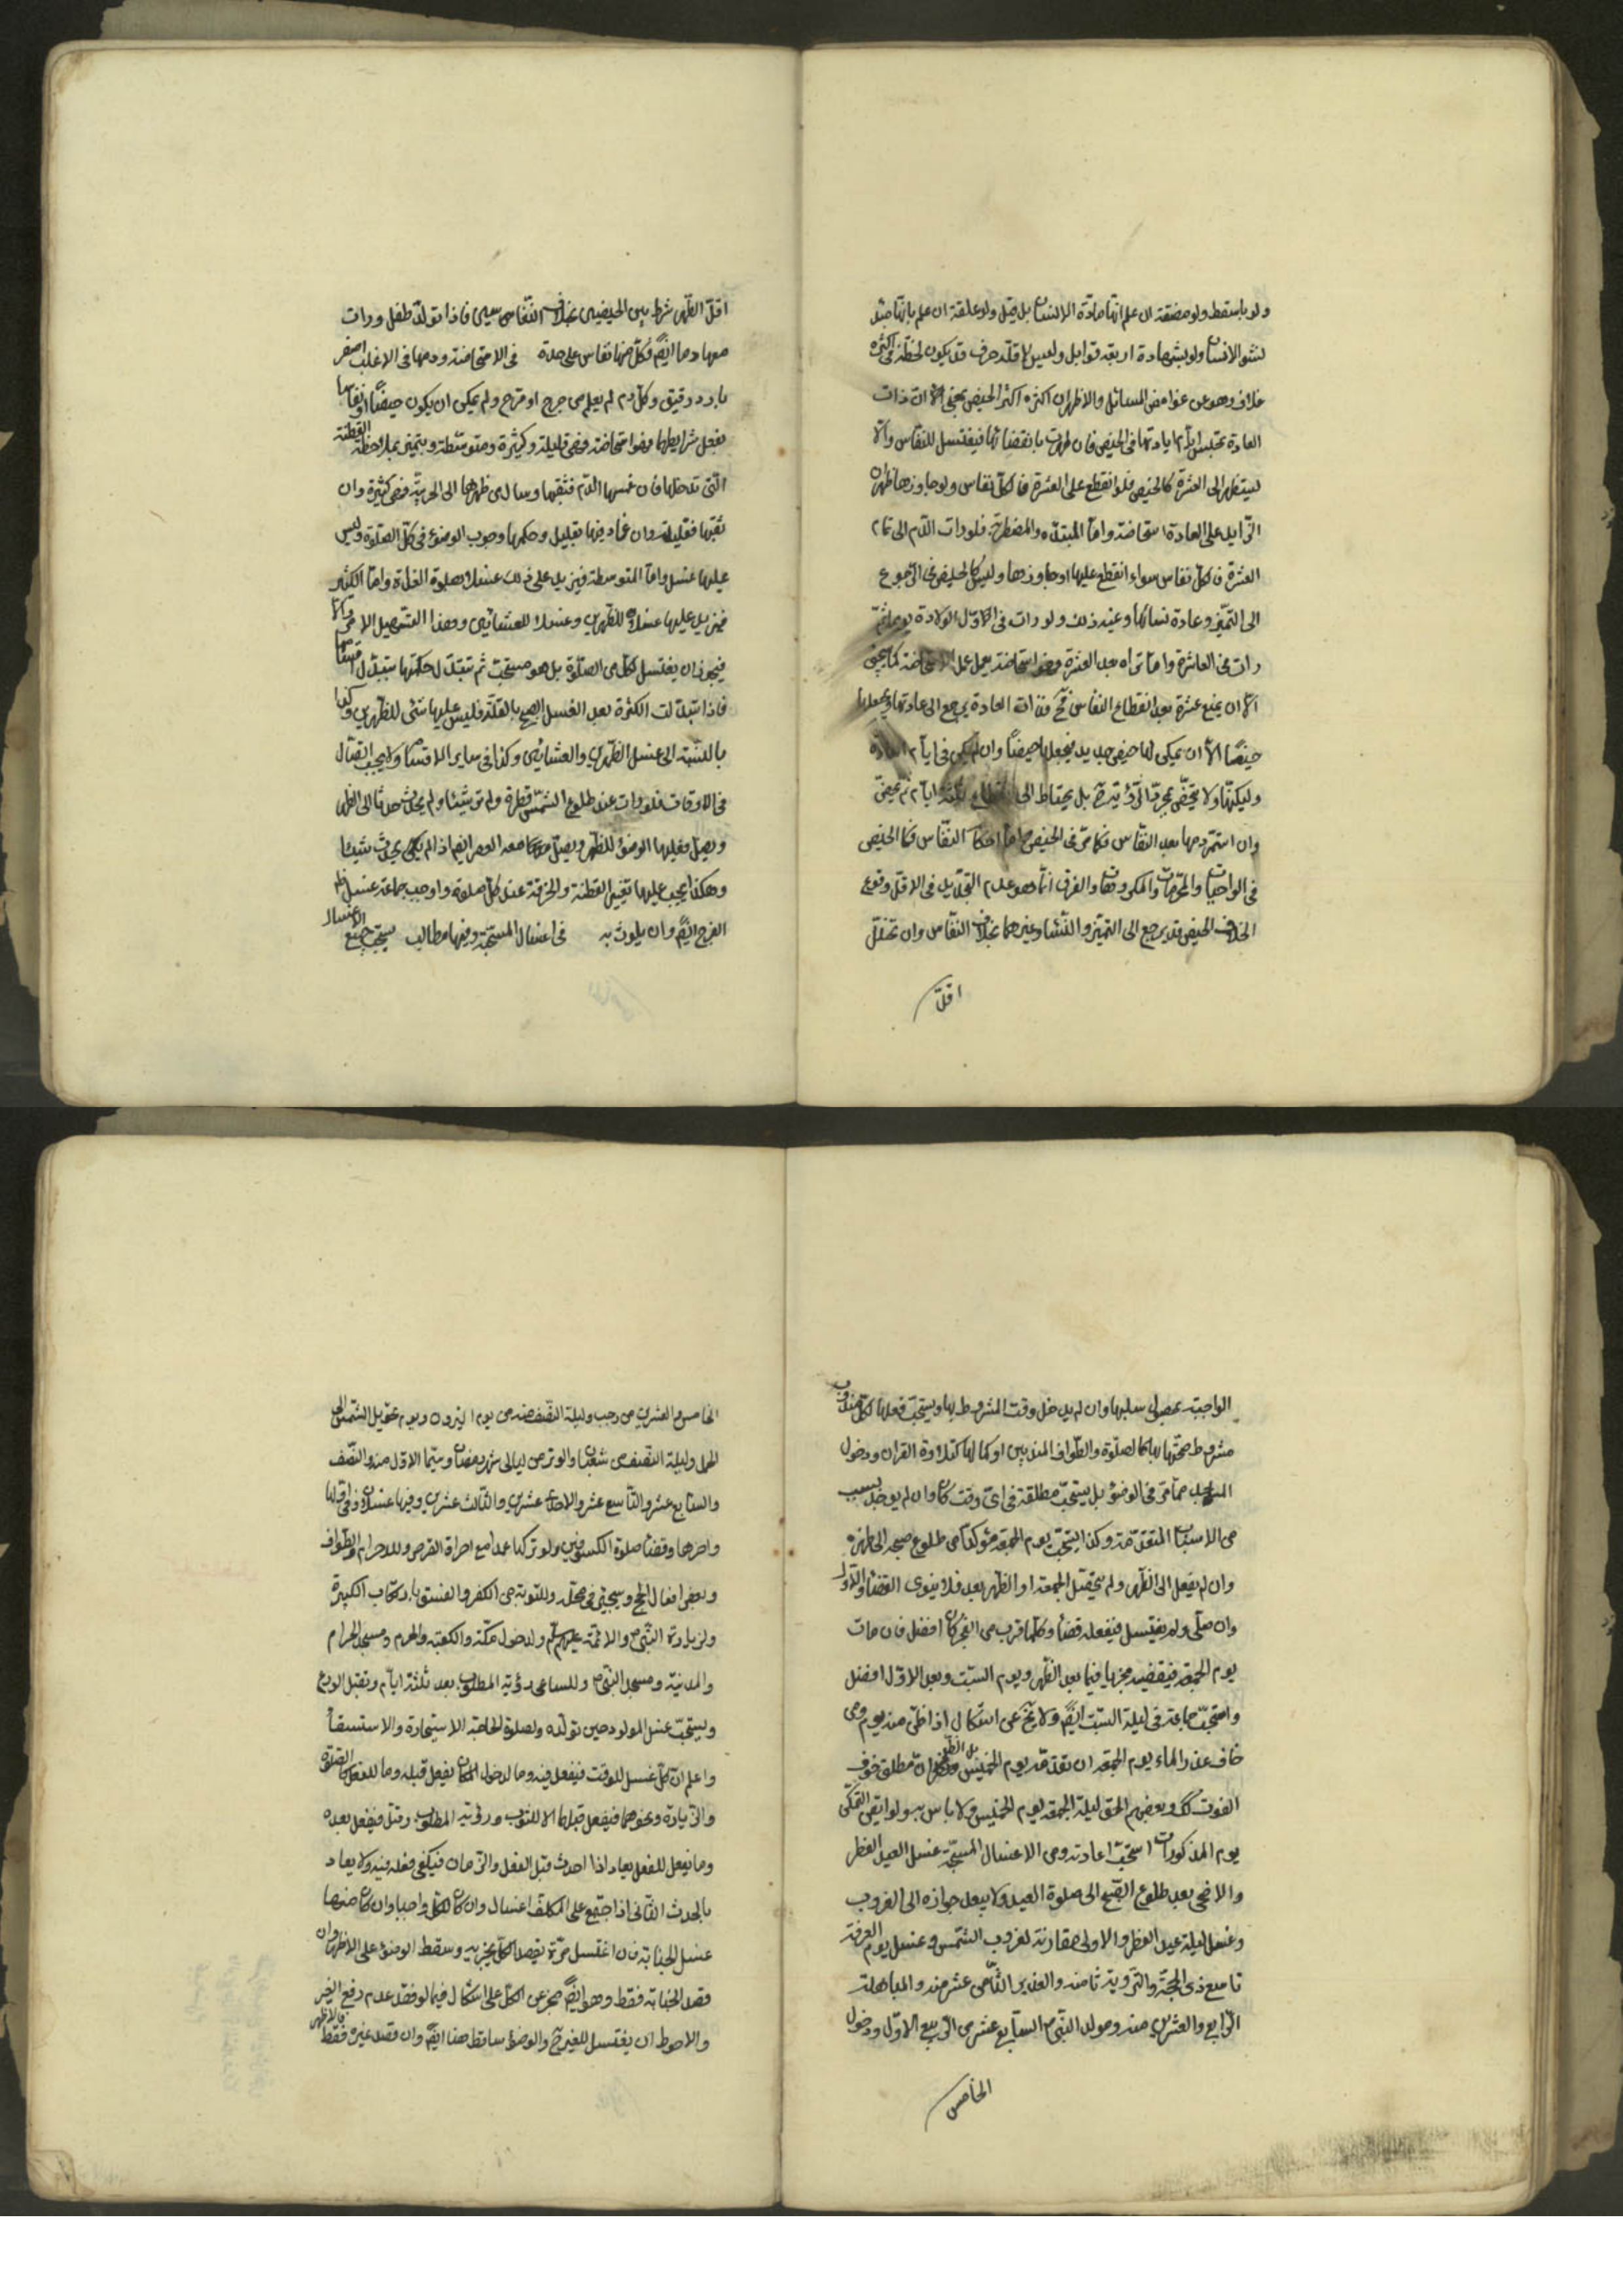 ولو باسقط ولو مضغة ان علم انها مادة الانسان بل قيل ولو علقة ان علم بانها مبدء
لنشو الانسان ولو بشهادة اربعة قوابل وليس لاقله حرف قد يكون لحظة وفى اكثره
خلاف وهو من غوامض المسائل والاظهر ان اكثره اكثر الحيض يعنى الا ان ذات
العادة تجلس ايام عادتها فى الحيض فان طهرت بانقضائها فيغتسل للنفاس والا
ليستظهر الى العشرة كالحيض فلو انقطع على العشرة فالكل نفاس ولو جاوزها ظهر ان
الزايد على العادة استحاضة واما المبتدئه والمضطربة فلو رات الدم الى تمام
العشرة فالكل نفاس سواء انقطع عليها او جاوزها وليس كالحيض فى الرجوع
الى التميز وعادة نسائها وغير ذلك ولو رات فى الاول الولادة يوما ثم
رات فى العاشرة واما تراه بعد العشرة فهو استحاضة يعمل عمل الاستحاضة كما يجئ
الا ان يمضى عشرة بعد انقطاع النفاس فح فذات العادة يرجع الى عادتها ويجعلها
حيضا الا ان يمكن لها حيض جديد فيجعلها حيضا وان لم يكن فى ايام العادة
ولكنها لا تحيض بمجرد الرؤية ح بل يحتاط الى ثلثة ايام ثم تحيض
وان استمر دمها بعد النفاس فكما مر فى الحيض واما احكام النفاس فكالحيض
فى الواجبات والمحرمات والمكروهات والفرق انما هو عدم التحديد فى الاقل ووقوع
الخلاف الحيض قد يرجع الى التميز والنساء وغيرهما بخلاف النفاس وان تخلل
اقل
اقل الطهر شرط بين الحيضين بخلاف النفاسين فاذا تولد طفل ورات
معها دما ايضا فكل منها نفاس على حدة فى الاستحاضة ودمها فى الاغلب اصفر
بارد رقيق وكل دم لم يعلم من جرح او قرح ولم يمكن ان يكون حيضا او نفاسا
بفعل شرايطها فهو استحاضة فهى قليلة وكثيرة ومتوسطة ويتميز بملاحظة القطنة
التى تدخلها فان غمسها الدم فثقبها وسال من ظهرها الى الخرقة فهى كثيرة وان
ثقبها فقليلة وان عاد فيها بقليل وحكمها وجوب الوضوء فى كل الصلوة وليس
عليها غسل واما المتوسطة فيزيد على ذلك غسلا لصلوة الغداة واما الكثير
فيزيد عليها غسلا للظهرين وغسلا للعشائين وهذا التسهيل الامر والا
فيجوز ان يغتسل لكل من الصلوة بل هو مستحب ثم تبدل حكمها بتبدل اقسامها
فاذا تبدلت الكثرة بعد الغسل الصبح بالقلة فليس عليها شئ للظهرين وكذا
بالنسبة الى غسل الظهرين والعشائين وكذا فى ساير الاقسام ولا يجب اتصال
فى الاوقات فلو رات عند طلوع الشمس قطرة ولم تر شيئا ولم يحدث حدثا الى الظهر
ويصل فعليها الوضوء للظهر ويصل معه العصر ايضا اذ لم يكن يحدث شيئا
وهكذا يجب عليها تغيير القطنة والخرقة عند كل صلوة واوجب جماعة غسل ظاهر
الفرج ايضا وان يلوث به فى اغسال المستحبة وفيها مطالب يستحب جميع الاغسال
الواجبة بحصول سببها وان لم يدخل وقت المشروط بها ويستحب فعلها لكل مندوب
مشروط صحتها بها كالصلوة والطواف المندوبين او كمالها كتلاوة القران ودخول
المسجد مما مر فى الوضوء بل يستحب مطلقة فى اى وقت كان وان لم يوجد بسبب
من الاسباب المتقدمة وكذا يستحب يوم الجمعة مؤكدا من طلوع صبحه الى ظهره
وان لم يفعل الى الظهر ولم يصل الجمعة او الظهر بعد فلا ينوى القضاء والاداء
وان صلى ولم يغتسل فيفعله قضاء وكلما قرب من الفجر كان افضل فان مات
يوم الجمعة فيقضيه فيما بعد الظهر ويوم السبت وبعد الاول افضل
واستحب جماعة فى ليلة السبت ايضا ولا يخ عن اشكال اذا ظن منه يوم ومن
خاف عند الماء يوم الجمعة ان تقدمه يوم الخميس بل الظاهر ان مطلق خوف
الفوت كك وبعضهم الحق ليلة الجمعة بيوم الخميس ولا باس به ولو اتفق التمكن
يوم المذكورات استحب اعادته ومن الاغسال المستحبة غسل العيد الفطر
والاضحى بعد طلوع الصبح الى صلوة العيد ولا يبعد جوازه الى الغروب
وغسل ليلة عيد الفطر والاولى مقارنته لغروب الشمس وغسل يوم العرفة
تاسع ذى الحجة والتروية ثامنه والغدير الثامن عشر منه والمباهلة
الرابع والعشرين منه ومولد النبى السابع عشر من الربيع الاول ودخول
الخامس
الخامس والعشرين من رجب وليلة النصف منه ومن يوم النيروز ويوم تحويل الشمس الى
الحمل وليلة النصف من شعبان والوتر من ليالى شهر رمضان وسيما الاول منه والنصف
والسابع عشر والتاسع عشر والاحد عشرين والثالث عشرين وفيها غسلان فى اولها
واخرها وقضاء صلوة الكسوفين ولو تركها عمدا مع احراق القرص وللاحرام والطواف
وبعض افعال الحج وسيجئ فى محله وللتوبة من الكفر والفسق بارتكاب الكبيرة
ولزيارة النبى والائمة عليهم السلام ولدخول مكة والكعبة والحرم ومسجد الحرام
والمدينة ومسجد النبى وللساعى لرؤية المصلوب بعد ثلثة ايام وتقبل الوزغ
ويستحب غسل المولود حين تولده ولصلوة الحاجة الاستخارة والاستسقاء
واعلم ان كل غسل للوقت فيفعل فيه وما لدخول المكان يفعل قبله وما للفعل كالصلوة
والزيادة ونحوهما فيفعل قبلها الا للتوبة ورؤية المصلوب وقتل فيفعل بعده
وما يفعل للفعل يعاد اذا احدث قبل الفعل والزمان فيكفى فعله فيه ولا يعاد
بالحدث الثانى اذا اجتمع على المكلف اغسال وان كان الكل واجبا وان كان منها
غسل الجنابة فان اغتسل مرة بقصد الكل يجزيه وسقط الوضوء على الاظهر وان
قصد الجنابة فقط وهو ايضا مجز عن الكل على اشكال فيما لو قصد عدم رفع الغير
والاحوط ان يغتسل للغير ح والوضوء ساقط هنا ايضا وان قصد غيره فقط فالاظهر